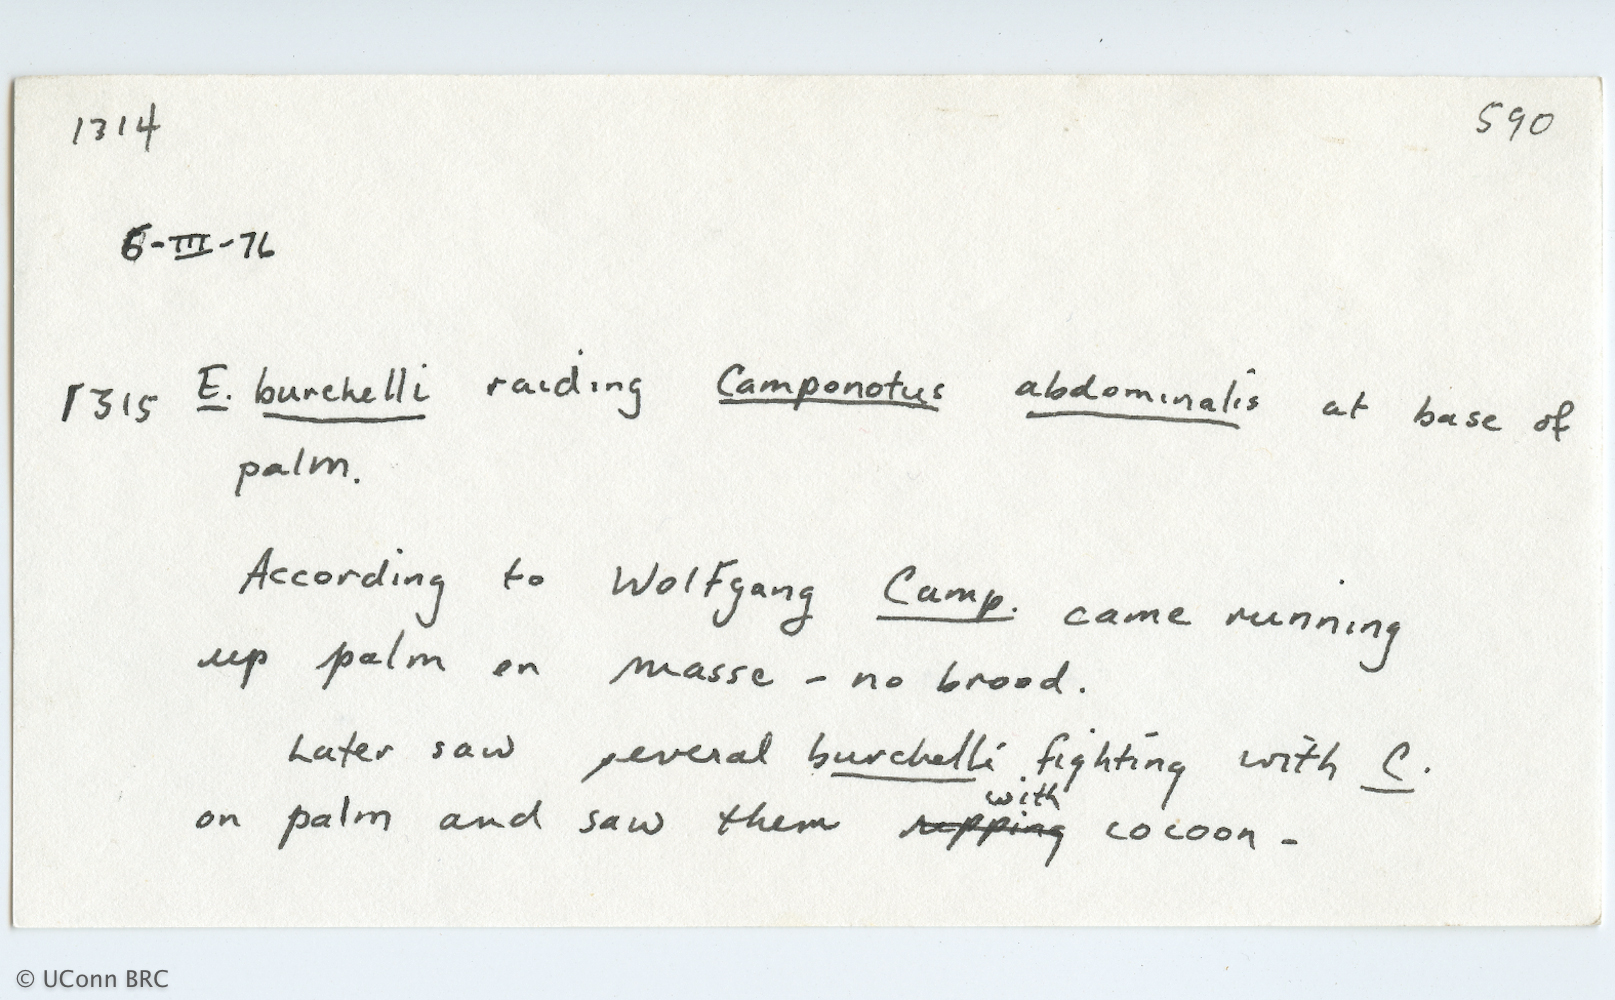 1314 590
6-III-76
1315 E. burchelli raiding Camponotus abdominalis at base of
palm.
According to Wolfgang Camp. came running
up palm en masse - no brood.
Later saw several burchelli fighting with C.
with
on palm and saw them ripping cocoon -
© UConn BRC